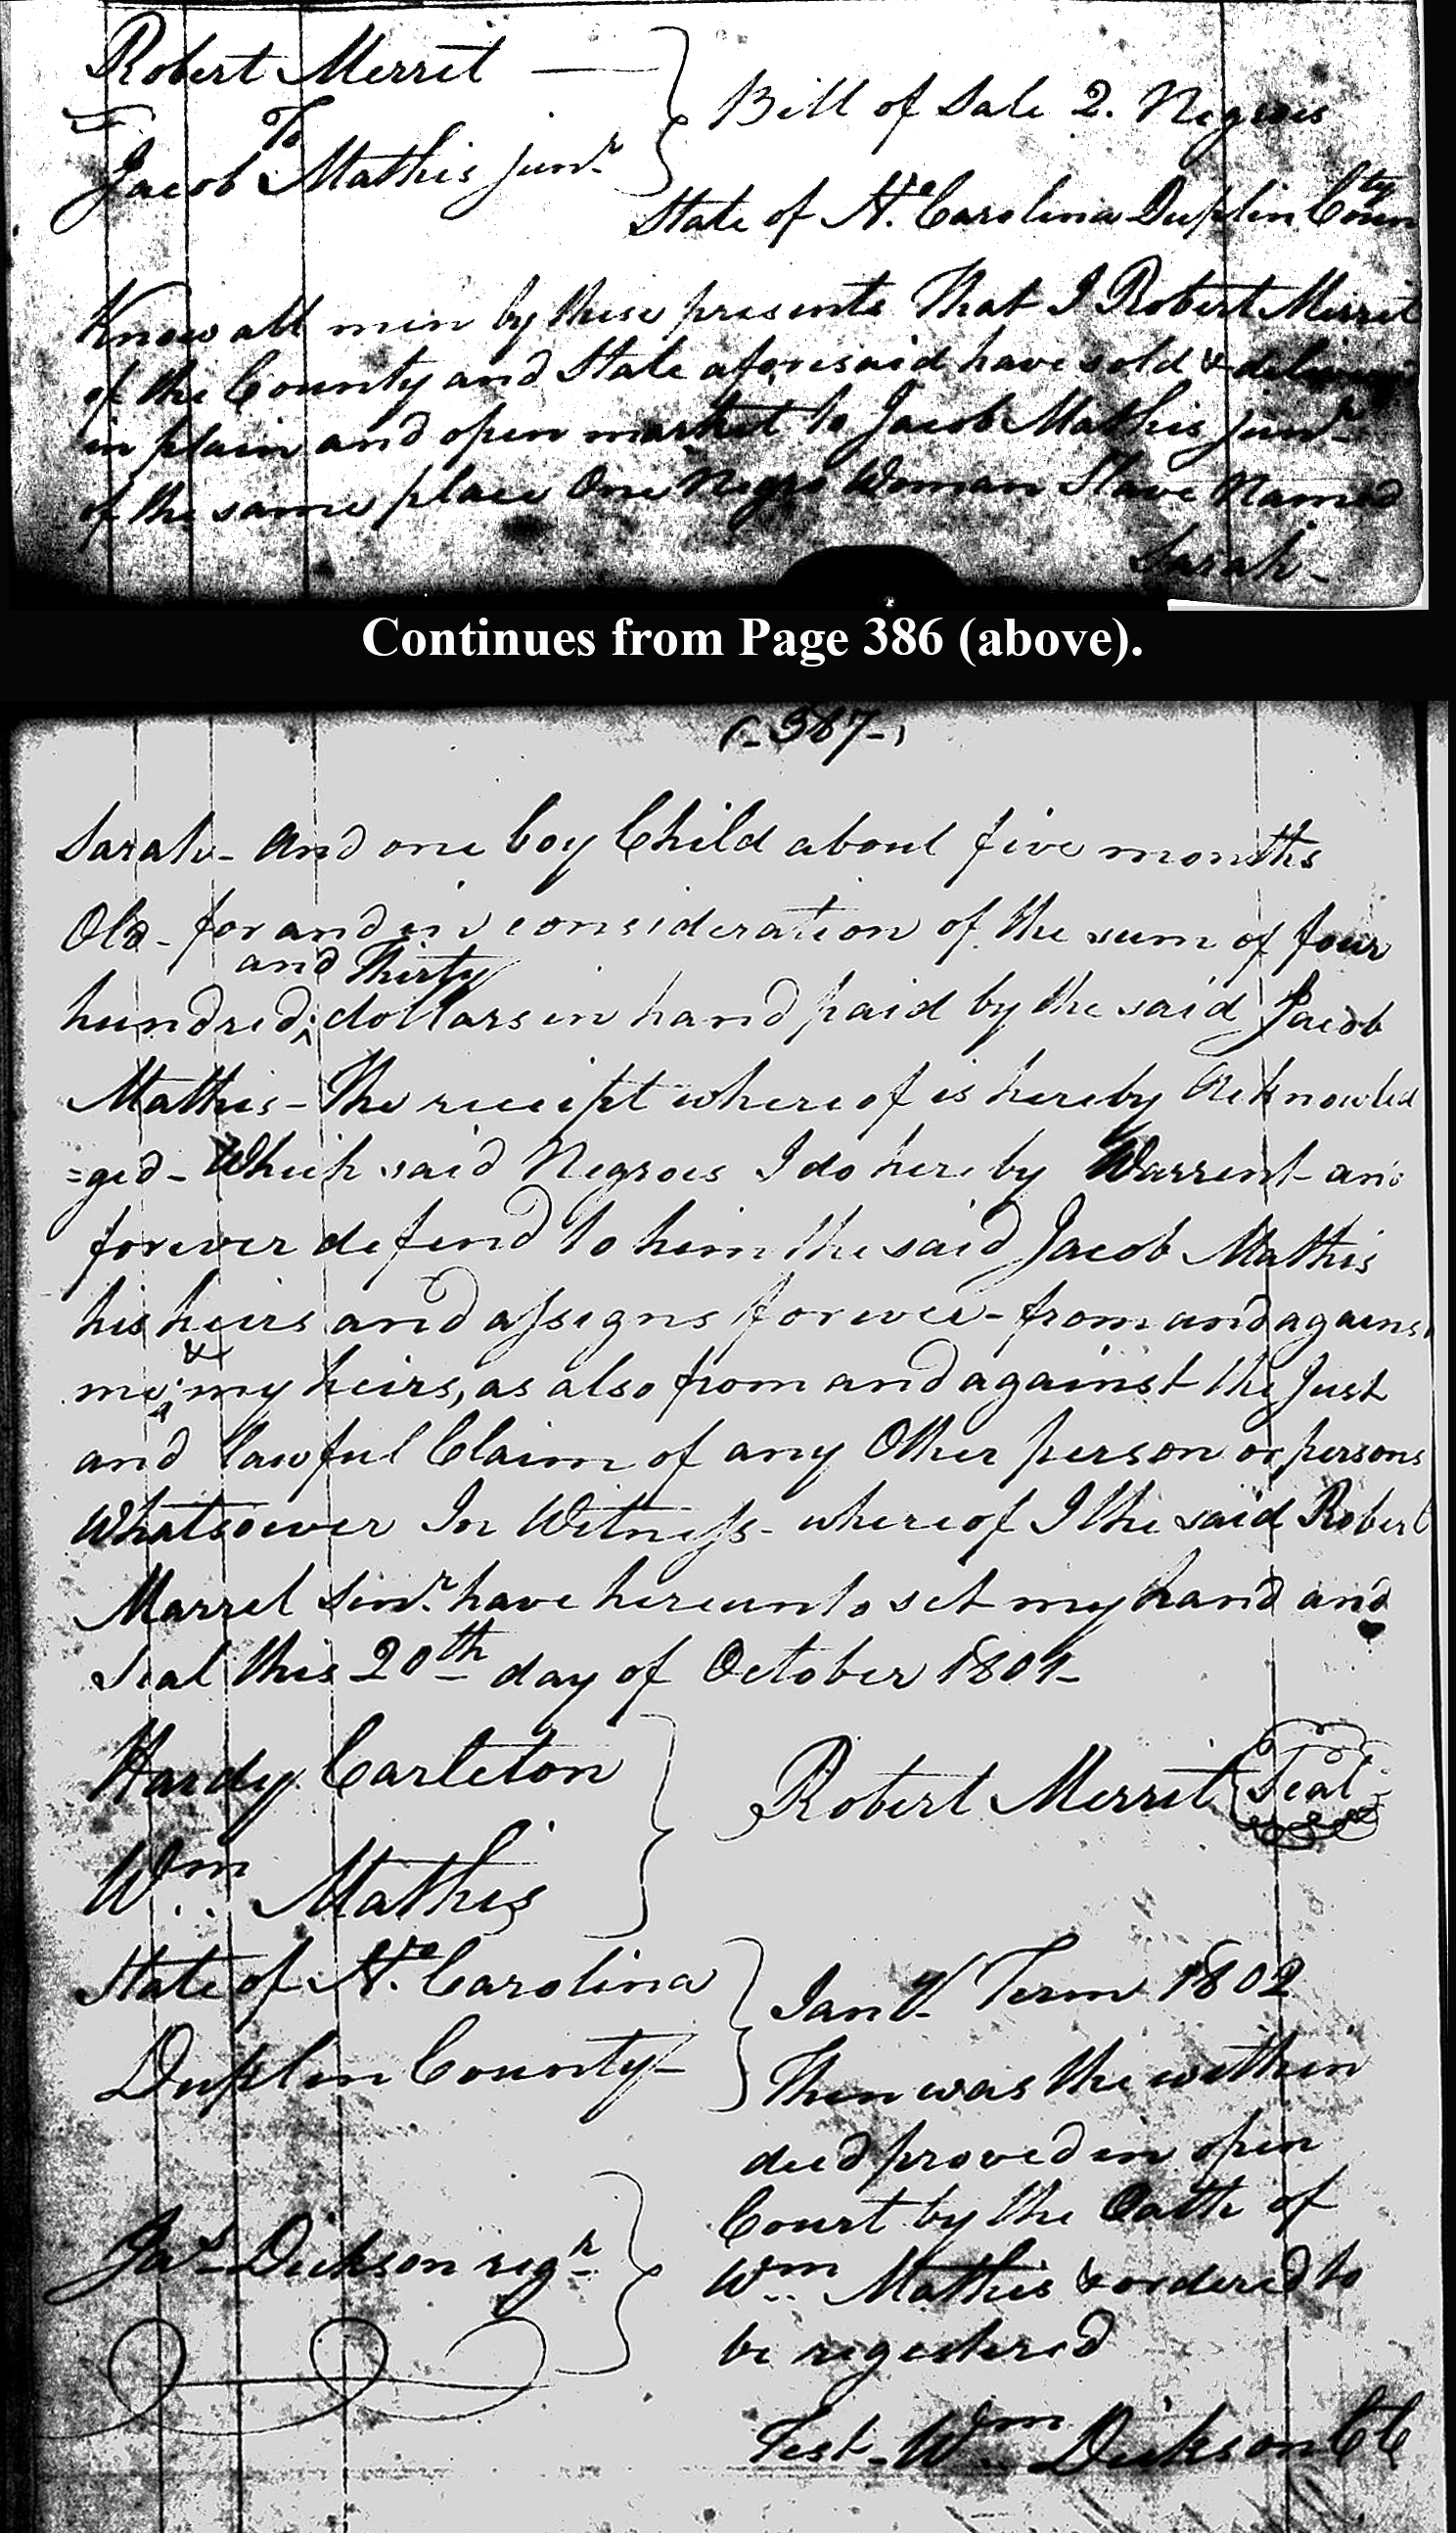 Robert Merrit —
To
Jacob Mathis junr
Bill of Sale 2. Negroes
State of No. Carolina Duplin County
Know all men by these presents That I Robert Merrit
of the County and State aforesaid have sold & delivered
in plain and open market to Jacob Mathis junr
of the same place One Negro Woman Slave Named
Sarah-
Continues from Page 386 (above).
(-387-)
Sarah- And one boy Child about five months
Old- for and in consideration of the sum of four
and Thirty
hundred ^ dollars in hand paid by the said Jacob
Mathis- The receipt whereof is hereby Acknowled
=ged- Which said Negroes I do here by Warrent and
forever defend to him the said Jacob Mathis
his heirs and assigns forever- from and against
&
me ^ my heirs, as also from and against the Just
and lawful Claim of any Other person or persons
Whatsoever In Witness- whereof I the said Robert
Marrel Senr. have hereunto set my hand and
Seal this 20th day of October 1801-
Hardy Carleton
Wm. Mathis
Robert Merrit Seal
State of No. Carolina
Duplin County-
Jany. Term 1802
Then was the within
deed proved in open
Court by the Oath of
Wm. Mathis & ordered to
be registered
Jas. Dickson regr
Test- Wm Dickson CC